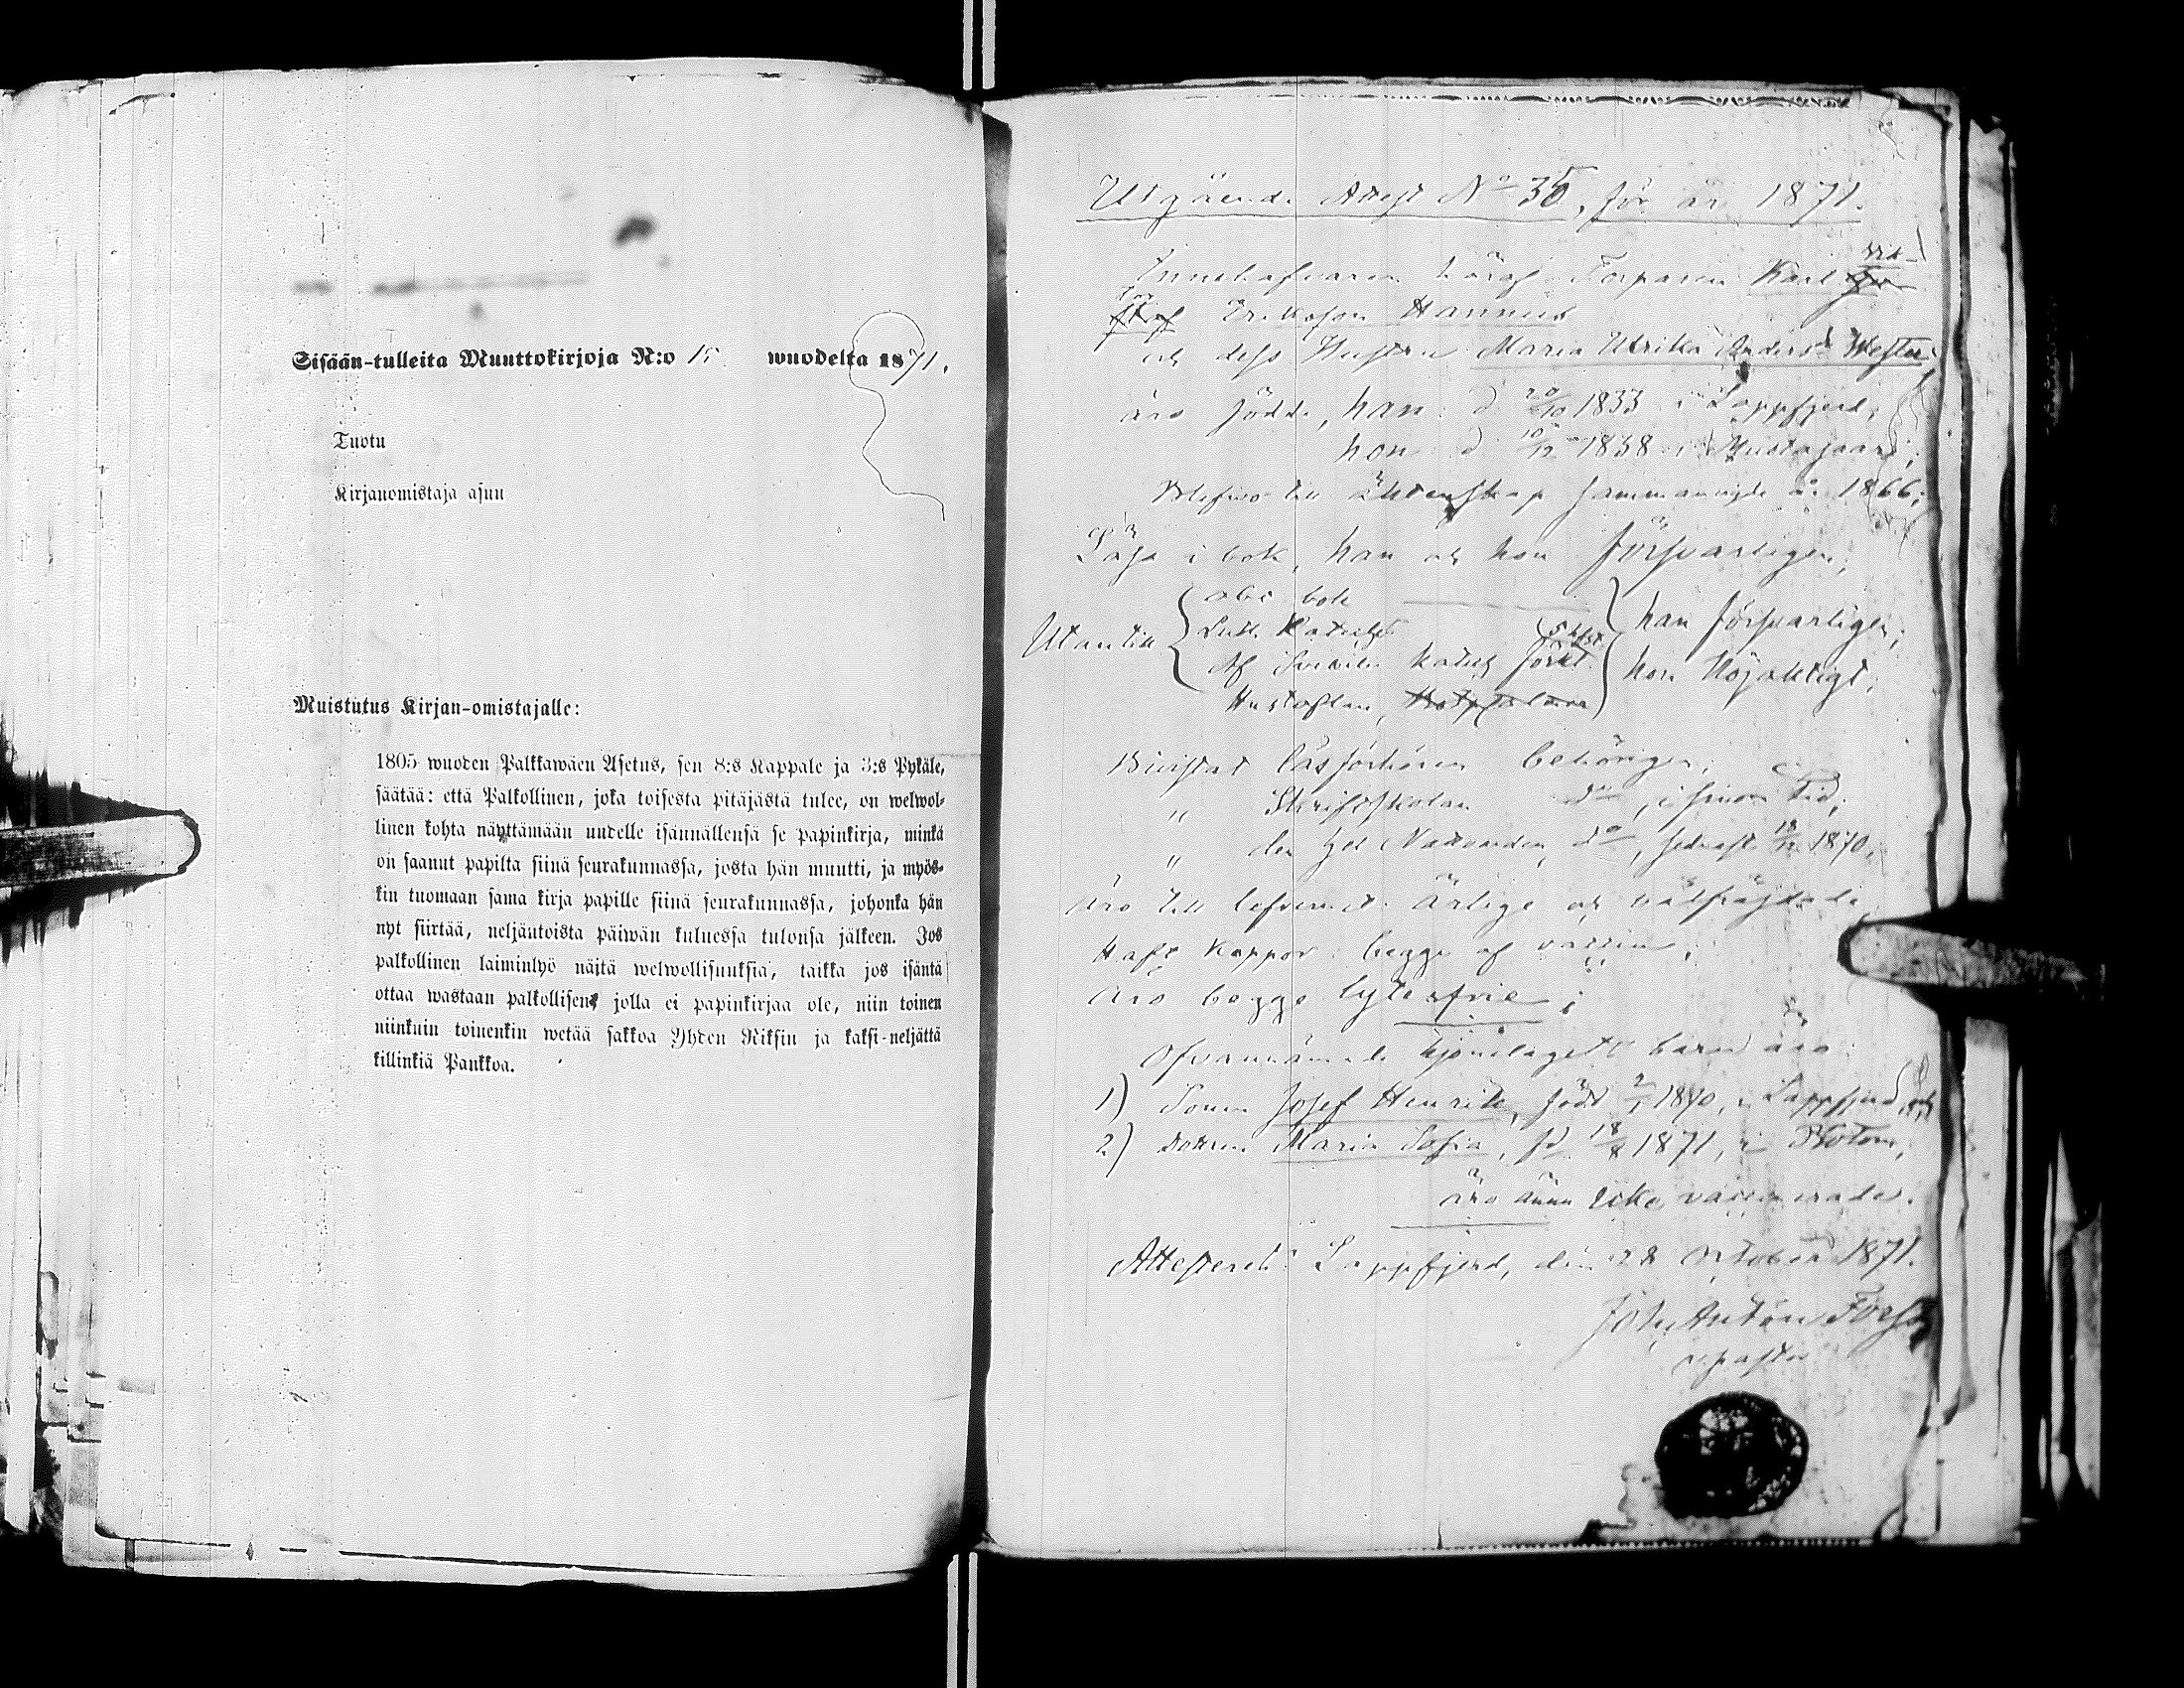 Sisään-tulleita Muuttokirjoja N:o 15 wuodelta 1871.
Tuotu
Kirjanomistaja asuu
Muistutus Kirjan-omistajalle:
1805 wuoden Palkkawäen Asetus, sen 8:s Kappale ja 3:s Pykäle,
säätää: että Palkollinen, joka toisesta pitäjästä tulee, on welwol-
linen kohta näyttämään uudelle isännällensä se papinkirja, minkä
on saanut papilta siinä seurakunnassa, josta hän muutti, ja myös-
kin tuomaan sama kirja papille siinä seurakunnassa, johonka hän
nyt siirtää, neljäntoista päiwän kuluessa tulonsa jälkeen. Jos
palkollinen laiminlyö näitä welwollisuuksia, taikka jos isäntä
ottaa wastaan palkollisen, jolla ei papinkirjaa ole, niin toinen
niinkuin toinenkin wetää sakkoa Yhden Riksin ja kaksi-neljättä
killinkiä Pankkoa.
Utgående Attest No 35, för år 1871.
Innehafvaren häraf Torparen Karl
Eriksson Hannus
och dess Hustru Maria Ulrika Andersd Wester
äro födde, han d 20/10 1833 i Lappfjerd,
hon d 10/12 1838 i Mustasaari;
Blefvo till äktenskap sammanvigde år 1866;
Läsa i bok, han och hon försvarligen;
Utantill
abc bok
Luth. Kateches
Af Svebilii katech förkl.
Hustaflan,
han försvarligen;
hon Nöjaktigt;
Bivistat läsförhören behörigen;
" Skriftskolan do, i sinom tid;
" den Hel Nattvarden do, sednast 18/12 1870;
Äro till lefvernet ärlige och välfräjdade
Haft koppor: begge af vaccin;
Äro begge lytesfrie;
Ofvannämnde hjonelagets barn äro:
1) Sonen Josef Henrik, född 2/1 1870, i Lappfjerd, och
2) Dottren Maria Sofia, fd 18/8 1871, i Bötom,
äro ännu icke vaccinerade.
Attesterat Lappfjerd, den 28 October 1871.
Joh. Anton
v. pastor